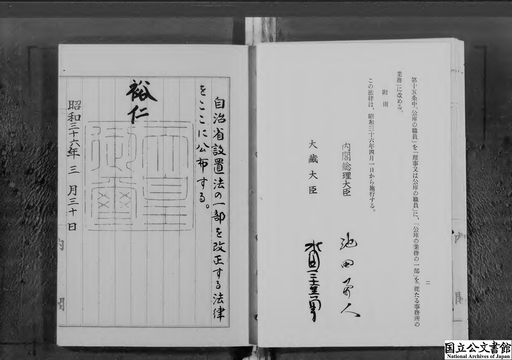 第十五条中「公庫の職員」を「理事又は公庫の職員」に、「公庫の業務の一部」を「従たる事務所の
業務」に改める。
附則
この法律は、昭和三十六年四月一日から施行する。
内閣総理大臣 池田勇人
大蔵大臣 水田三喜男
自治省設置法の一部を改正する法律
をここに公布する。
裕仁
天皇御璽
昭和三十六年三月三十日
国立公文書館
National Archives of Japan